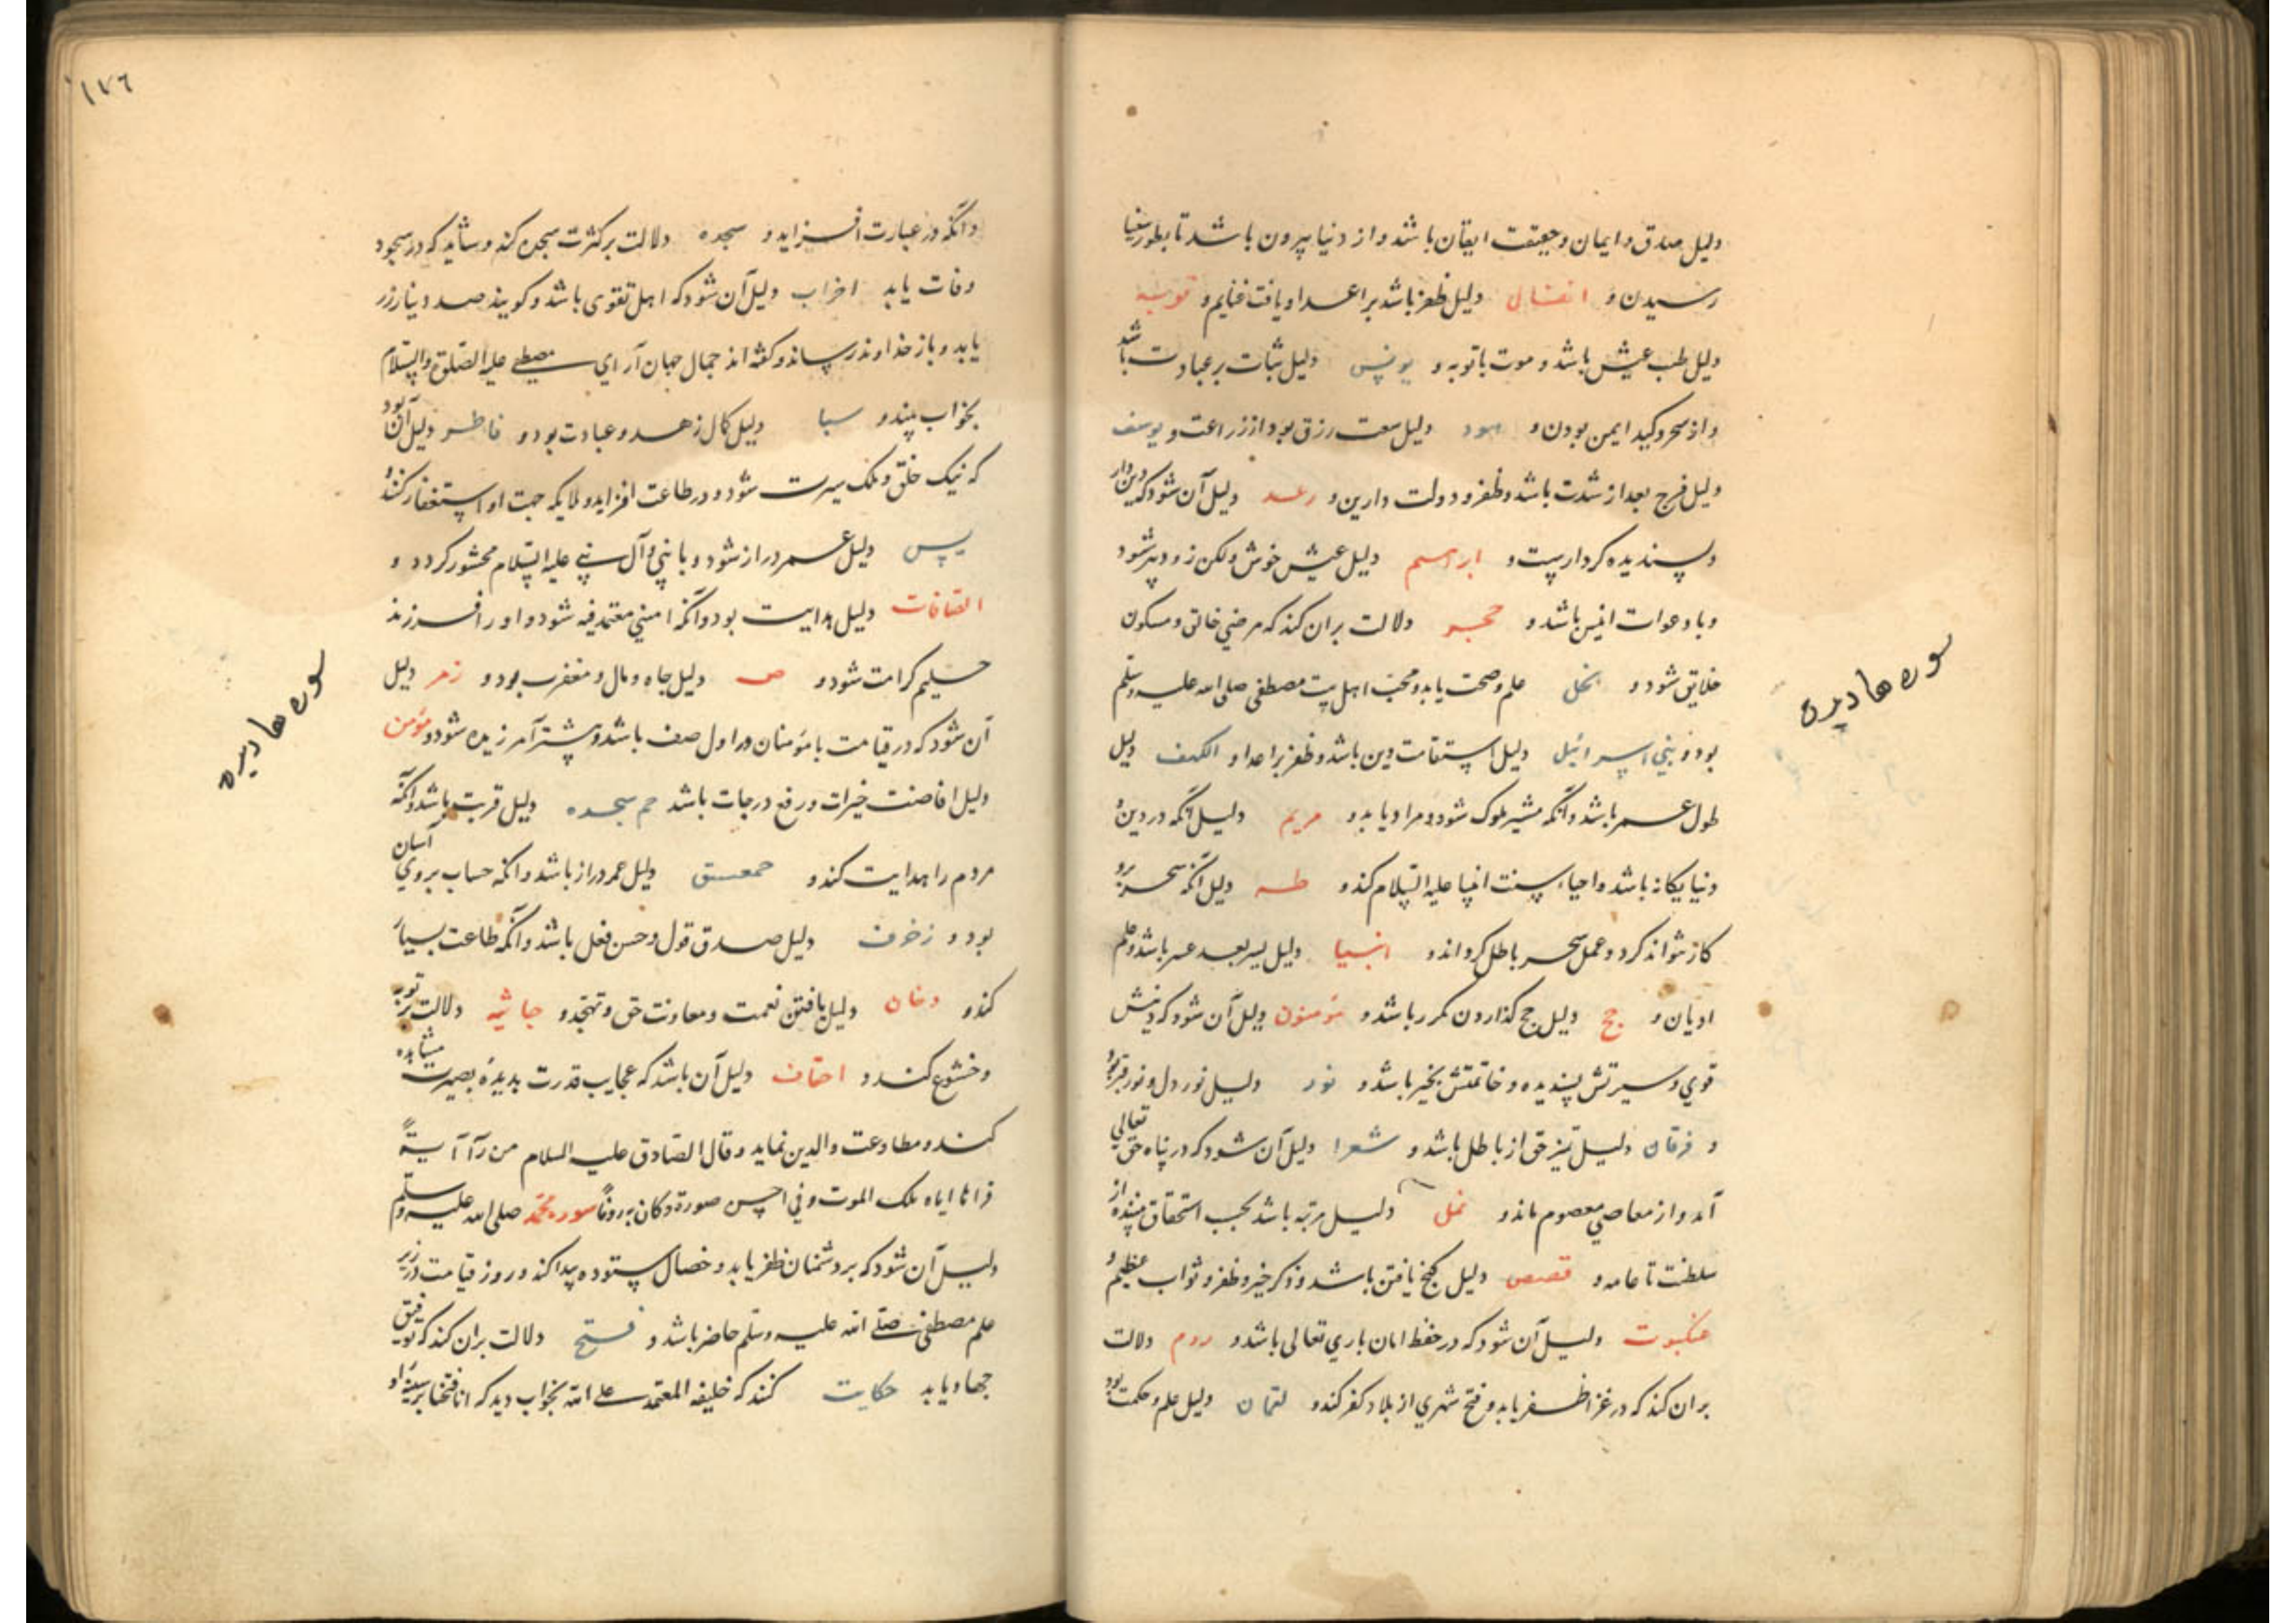 دلیل صدق و ایمان و حقیقت ایقان باشد و از دنیا بیرون باشد تا بطور سینا
رسیدن و انفال دلیل ظفر باشد بر اعدا و یافت غنایم و توبه
دلیل طیب عیش باشد و موت با توبه و یونس دلیل ثبات بر عبادت باشد
و از سحر و کید ایمن بودن و هود دلیل سعت رزق بود از زراعت و یوسف
دلیل فرج بعد از شدت باشد و ظفر و دولت دارین و رعد دلیل آن شود که دین دار
و پسندیده کردار است و ابراهیم دلیل عیش خوش ولکن زود پیر شود
و با دعوات انیس باشد و حجر دلالت بران کند که مرضی خالق و مسکون
خلایق شود و نحل علم و صحت یابد و محب اهل بیت مصطفی صلی الله علیه وسلم
بود و بنی اسرائیل دلیل استقامت دین باشد و ظفر بر اعدا و الکهف دلیل
طول عمر باشد و آنکه مشیر ملوک شود و مراد یابد و مریم دلیل آنکه در دین و
دنیا یکانه باشد و احیاء سنت انبیا علیه السلام کند و طه دلیل آنکه سحر برو
کار نتواند کرد و عمل سحر باطل کرداند و انبیا دلیل یسر بعد عسر باشد و علم
ادیان و حج دلیل حج کذاردن مکرر باشد و مؤمنون دلیل آن شود که دینش
قوی و سیرتش پسندیده و خاتمتش بخیر باشد و نور دلیل نور دل و نور قبر بود
و فرقان دلیل تمیز حق از باطل باشد و شعرا دلیل آن شود که در پناه حق تعالی
آید و از معاصی معصوم ماند و نمل دلیل مرتبه باشد بحسب استحقاق بیننده از
سلطنت تا عامه و قصص دلیل کنج یافتن باشد و ذکر خیر و ظفر و ثواب عظیم و
عنکبوت دلیل آن شود که در حفظ امان باری تعالی باشد و روم دلالت
بران کند که در غزا ظفر یابد و فتح شهری از بلاد کفر کند و لقمان دلیل علم و حکمت بود
سوره ها دیدن
۱۷۶
و آنکه در عبارت افزاید و سجده دلالت بر کثرت سجده کند و شاید که در سجود
وفات یابد احزاب دلیل آن شود که اهل تقوی باشد و کویند صد دینار زر
یابد و باز خداوند رساند و کفته اند جمال جهان آرای مصطفی علیه الصلوة والسلام
بخواب بیند و سبا دلیل کمال زهد و عبادت بود و فاطر دلیل آن بود
که نیک خلق و ملک سیرت شود و در طاعت افزاید و ملایکه جهت او استغفار کنند و
یس دلیل عمر دراز شود و با نبی و آل نبی علیه السلام محشور کردد و
الصافات دلیل هدایت بود و آنکه امینی معتمد فیه شود و او را فرزند
حلیم کرامت شود و ص دلیل جاه و مال و مغفرت بود و زمر دلیل
آن شود که در قیامت با مؤمنان در اول صف باشد و بیشتر آمرزیده شود و مؤمن
دلیل افاضت خیرات و رفع درجات باشد حم سجده دلیل قربت باشد و آنکه
مردم را هدایت کند و حمعسق دلیل عمر دراز باشد و آنکه حساب بروی آسان
بود و زخرف دلیل صدق قول و حسن فعل باشد و آنکه طاعت بسیار
کند و دخان دلیل یافتن نعمت و معاونت حق و تهجد و جاثیه دلالت بر توبه
و خشوع کند و احقاف دلیل آن باشد که عجایب قدرت بدیده بصیرت مشاهده
کند و مطاوعت والدین نماید و قال الصادق علیه السلام من رآ آیة
قراتا ایاه ملک الموت و فی احسن صورة و کان به روفاً سوره محمد صلی الله علیه وسلم
دلیل آن شود که بر دشمنان ظفر یابد و خصال ستوده پیدا کند و روز قیامت در زیر
علم مصطفی صلی الله علیه وسلم حاضر باشد و فتح دلالت بران کند که توفیق
جهاد یابد حکایت کنند که خلیفه المعتمد علی الله بخواب دید که انا فتحنا بر سینه او
سوره ها دیدن